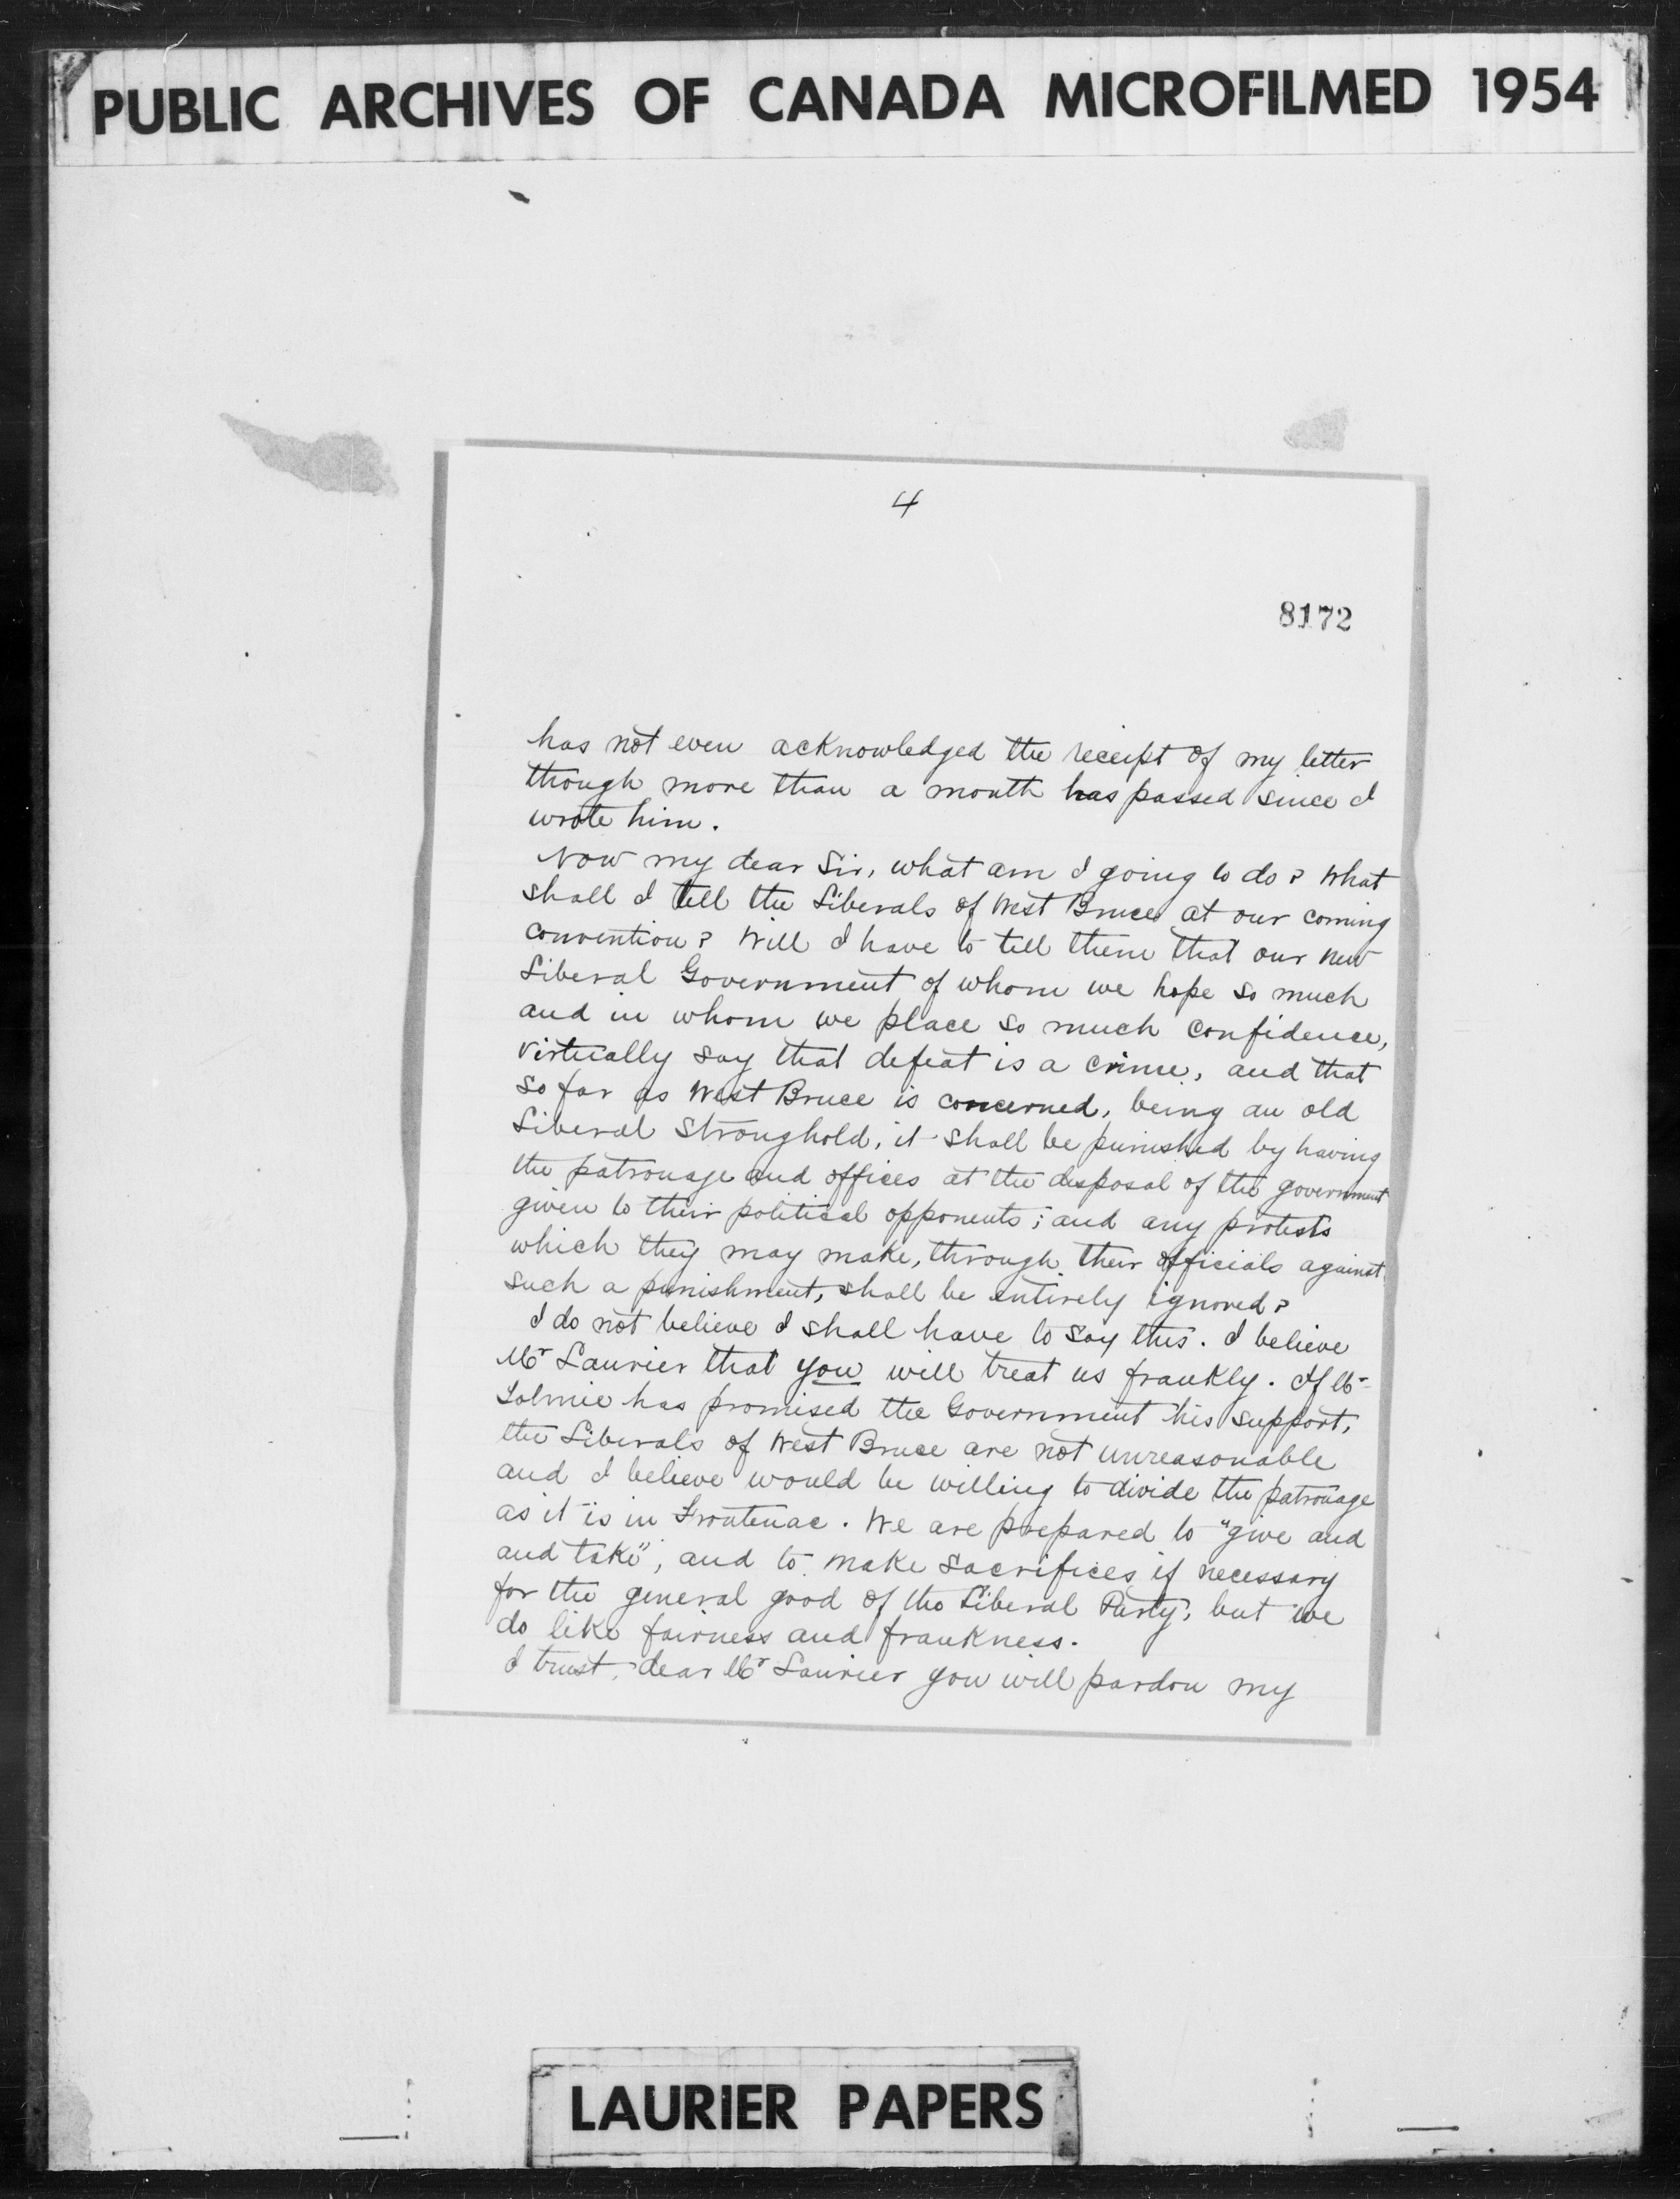 PUBLIC ARCHIVES OF CANADA MICROFILMED 1954
4
8172
has not even acknowledged the receipt of my letter
though more than a month has passed since I
wrote him.
Now my dear Sir, what am I going to do? What
shall I tell the Liberals of West Bruce at our coming
convention? Will I have to tell them that our new
Liberal Government of whom we hope so much
and in whom we place so much confidence,
virtually say that defeat is a crime, and that
so far as West Bruce is concerned, being an old
Liberal stronghold, it shall be punished by having
the patronage and offices at the disposal of the government
given to their political opponents; and any protests
which they may make, through their officials against
such a punishment, shall be entirely ignored?
I do not believe I shall have to say this. I believe
Mr Laurier that you will treat us frankly. If Mr
Tolmie has promised the Government his support,
the Liberals of West Bruce are not unreasonable
and I believe would be willing to divide the patronage
as it is in Frontenac. We are prepared to "give and
and take", and to make sacrifices if necessary
for the general good of the Liberal Party, but we
do like fairness and frankness.
I trust, dear Mr Laurier you will pardon my
LAURIER PAPERS